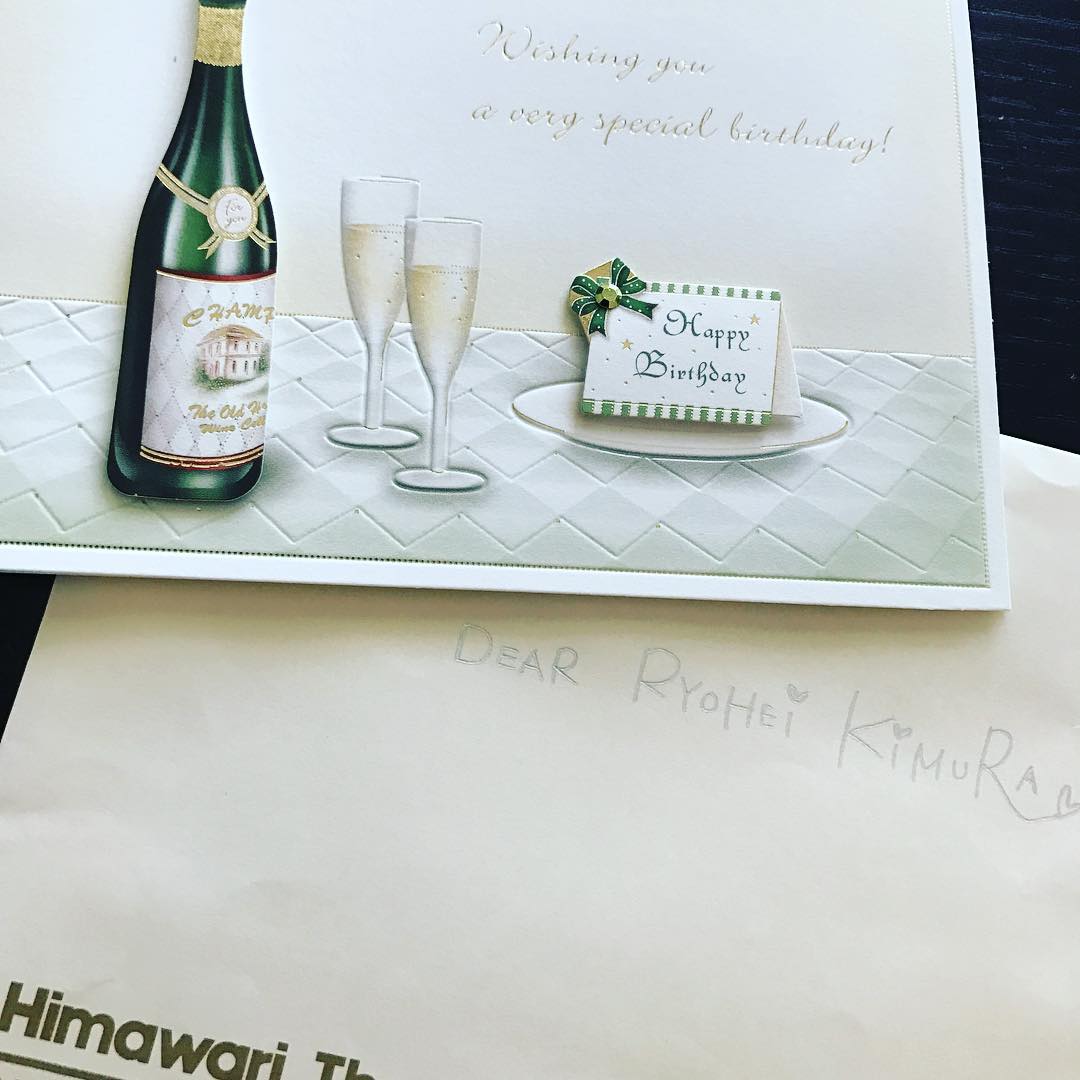 Wishing you
a very special birthday!
for
you
CHAMP
The Old
Wine
Happy
Birthday
DEAR RYOHEI KIMURA
Himawari Th